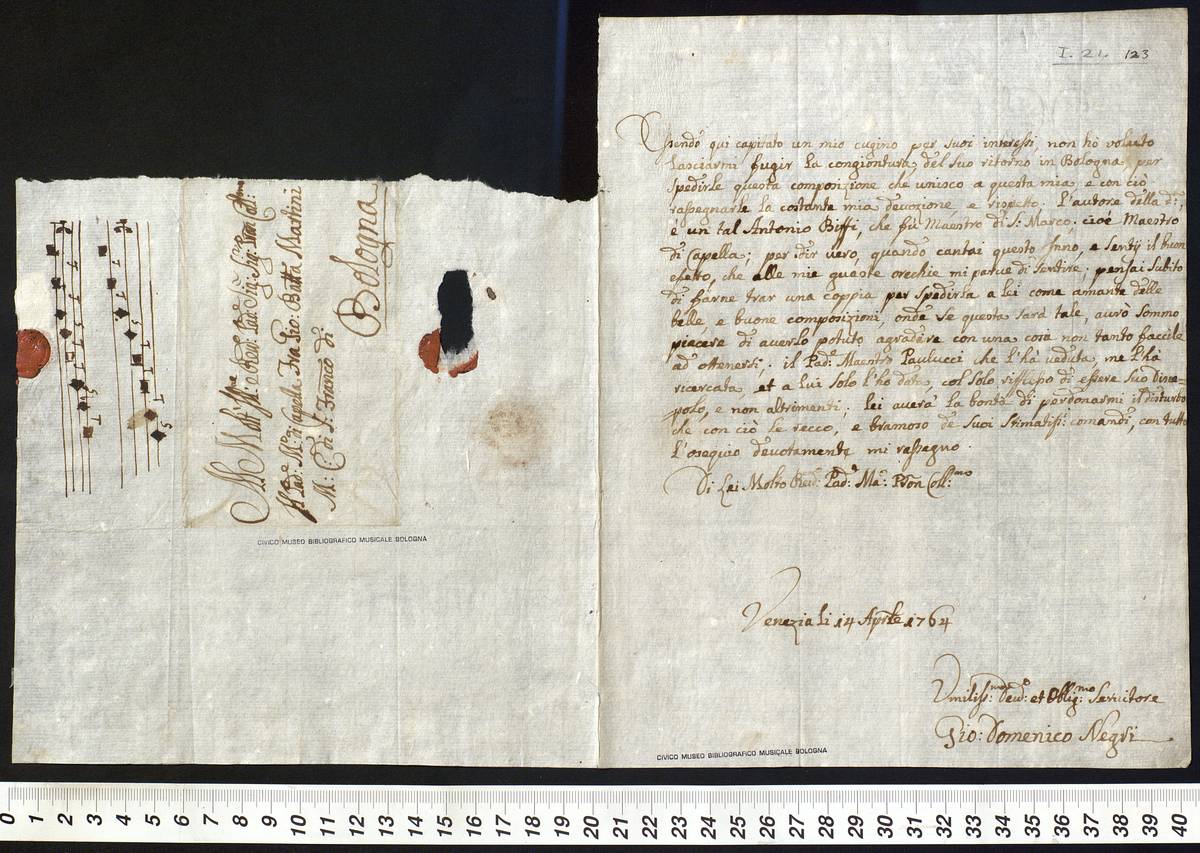 I. 21. 123
Essendo qui capitato un mio cugino per suoi interessi, non hò voluto
lasciarmi fugir la congiontura, del suo ritorno in Bologna, per
spedirle questa composizione che unisco a questa mia, e con ciò
rassegnarle la costante mia devozione, e rispetto. L'autore della
è un tal Antonio Biffi, che fù Maestro di S: Marco, cioè Maestro
di Capella; per dir vero, quando cantai questo Inno, e sentij il buon
efetto, che alle mie guaste orechie mi parve di sentire; pensai subito
di farne trar una coppia per spedirla a lei come amante delle
belle, e buone composizioni, onde se questa sarà tale, avrò sommo
piacere di averlo potuto agradire con una cosa non tanto faccile
ad ottenersi; il Pad: Maestro Paulucci che l'hà veduta, me l'hà
ricercata, et a lui solo l'ho data, col solo riflesso di essere suo Disce=
polo, e non altrimenti; lei averà la bontà di perdonarmi il disturbo
che con ciò le recco, e bramoso de suoi stimatiss: comandi, con tutto
l'osequio devotamente mi rassegno.
Di Lei Molto Revd: Pad: Ma: Pron Coll:mo
Venezia li 14 Aprile 1764
Umiliss:mo Dev: et Oblig:mo Servitore
Gio: Domenico Negri
CIVICO MUSEO BIBLIOGRAFICO MUSICALE BOLOGNA
Il Pad:e M:ro di Capella Fra Gio: Batta Martini
M: C: di S: Franco di
Bologna
CIVICO MUSEO BIBLIOGRAFICO MUSICALE BOLOGNA
0 1 2 3 4 5 6 7 8 9 10 11 12 13 14 15 16 17 18 19 20 21 22 23 24 25 26 27 28 29 30 31 32 33 34 35 36 37 38 39 40